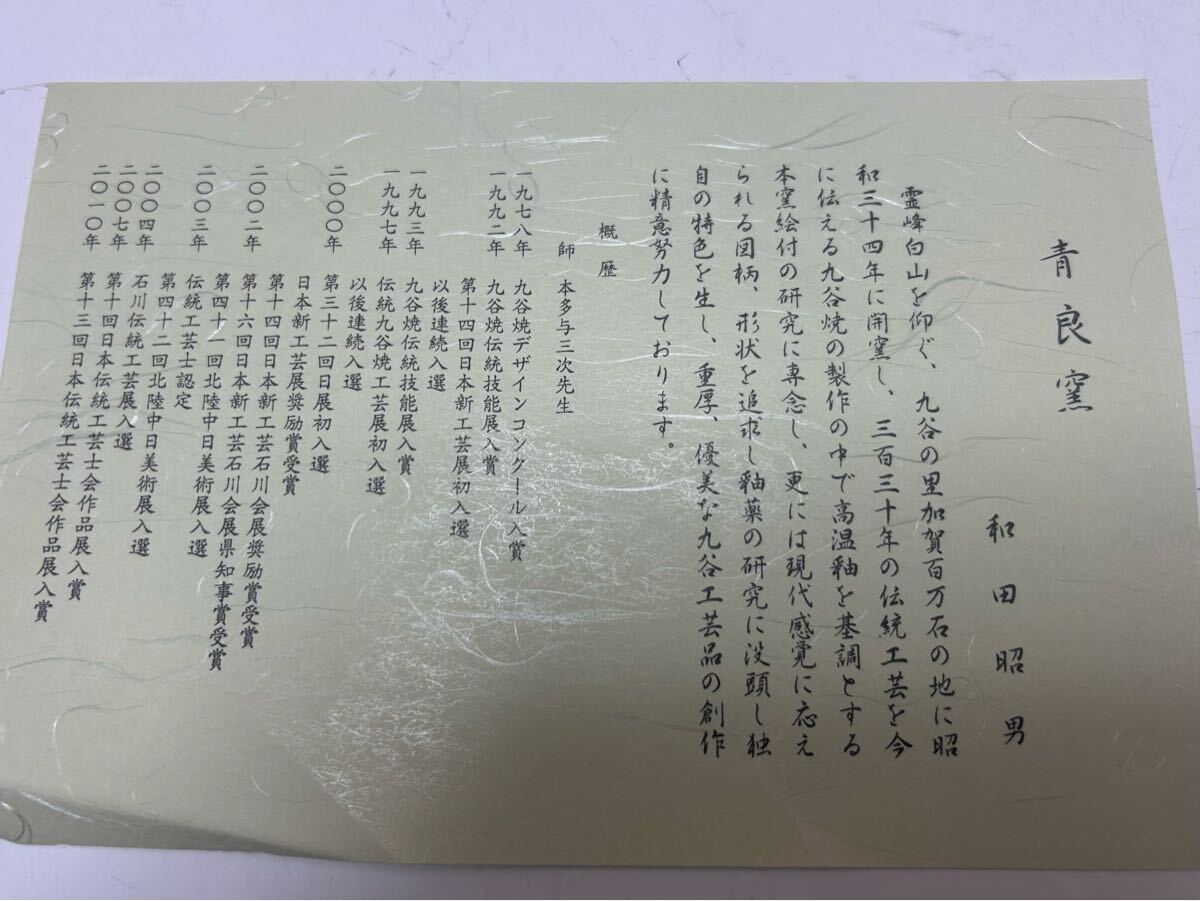 青良窯
和田昭男
霊峰白山を仰ぐ、九谷の里加賀百万石の地に昭
和三十四年に開窯し、三百三十年の伝統工芸を今
に伝える九谷焼の製作の中で高温釉を基調とする
本窯絵付の研究に専念し、更には現代感覚に応え
られる図柄、形状を追求し釉薬の研究に没頭し独
自の特色を生し、重厚、優美な九谷工芸品の創作
に精意努力しております。
概歴
師 本多与三次先生
一九七八年 九谷焼デザインコンクール入賞
一九九二年 九谷焼伝統技能展入賞
第十四回日本新工芸展初入選
以後連続入選
一九九三年 九谷焼伝統技能展入賞
一九九七年 伝統九谷焼工芸展初入選
以後連続入選
二〇〇〇年 第三十二回日展初入選
日本新工芸展奨励賞受賞
第十四回日本新工芸石川会展奨励賞受賞
二〇〇二年 第十六回日本新工芸石川会展県知事賞受賞
第四十一回北陸中日美術展入選
二〇〇三年 伝統工芸士認定
第四十二回北陸中日美術展入選
二〇〇四年 石川伝統工芸展入選
二〇〇七年 第十回日本伝統工芸士会作品展入賞
二〇一〇年 第十三回日本伝統工芸士会作品展入賞